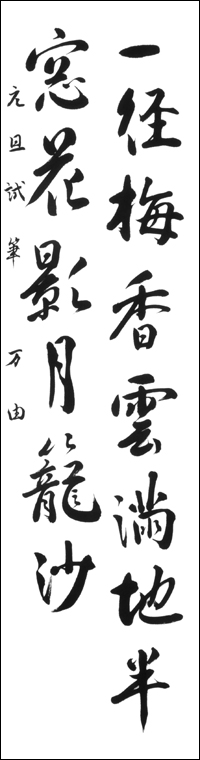 一径梅香雲満地半
窓花影月籠沙
元旦試筆 万由